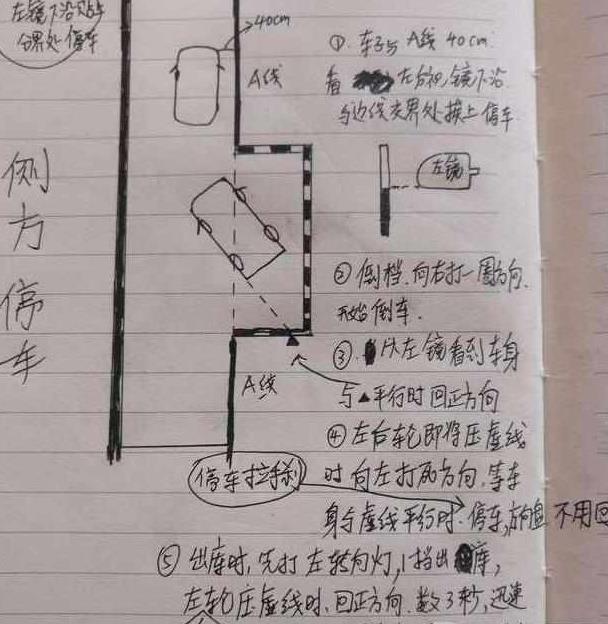 左镜下沿贴与
分界处停车
40cm
A线
侧方停车
① 车子与A线40cm.
看 左后视镜下沿
与边线交界处挨上停车
左镜
② 倒档.向右打一圈方向.
开始倒车.
③ 从左镜看到车身
与▲平行时回正方向
A线
④ 左后轮即将压虚线
时向左打死方向.等车
身与虚线平行时.停车,方向盘不用回
停车拉手刹
⑤ 出库时,先打左转向灯,1挡出库,
左轮压虚线时.回正方向.数3秒,迅速